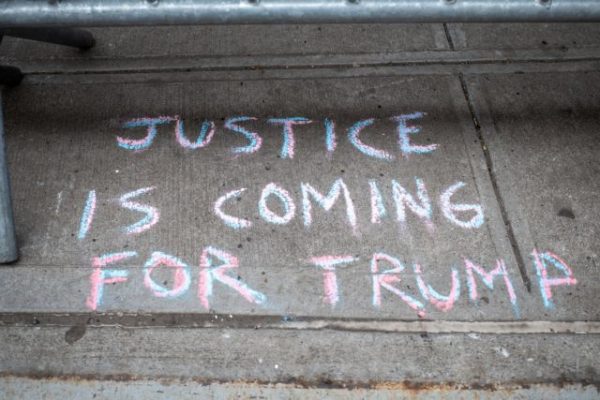 JUSTICE
IS COMING
FOR TRUMP